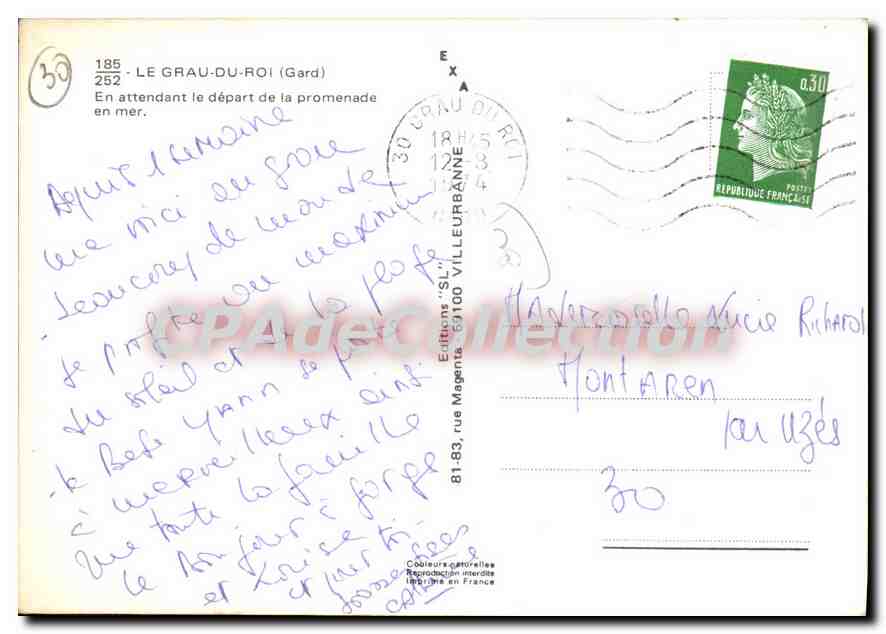 30
185
252 - LE GRAU-DU-ROI (Gard)
En attendant le départ de la promenade
en mer.
Depuis 1 semaine
me voici au grau
beaucoup de monde
je profite au maximum
du soleil et de la plage
le Bébé Yann se porte
à merveilleux ainsi
que toute la famille
le bonjour à
et Louisette
et pour toi
EXA
Editions "SL"
81-83, rue Magenta 69100 VILLEURBANNE
Couleurs naturelles
Reproduction interdite
Imprimé en France
30 GRAU DU ROI
18H45
12-8
1974
GARD
0,30
POSTES
REPUBLIQUE FRANÇAISE
Mademoiselle Lucie Richard
Montaren
par Uzés
30
CPAdeCollection